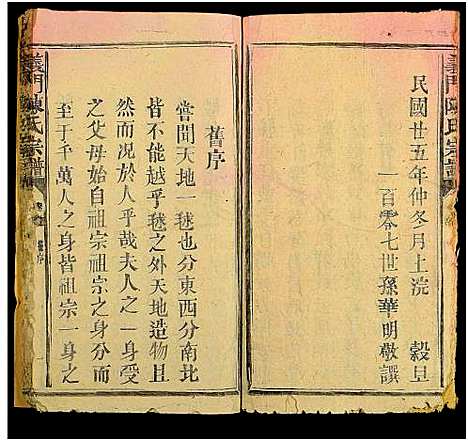 義門陳氏宗譜
民國廿五年仲冬月上浣 穀旦
一百零七世孫華明敬譔
舊序
嘗聞天地一毬也分東西分南北
皆不能越乎毬之外天地造物且
然而况於人乎哉夫人之一身受
之父母始自祖宗祖宗之身分而
至于千萬人之身皆祖宗一身之
義門陳氏宗譜
舊序